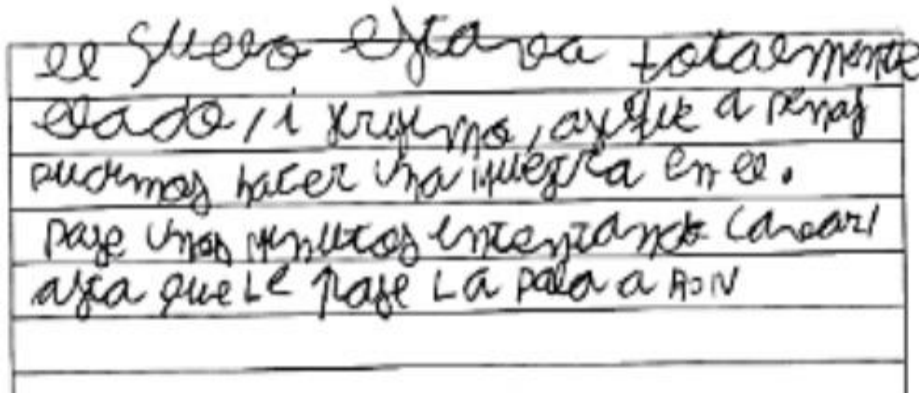 el suelo estava totalmente
elado, i, asique a penas
pudimos hacer una muesca en el.
pase unos minutos intentando cavar i
asta que le pase la pala a